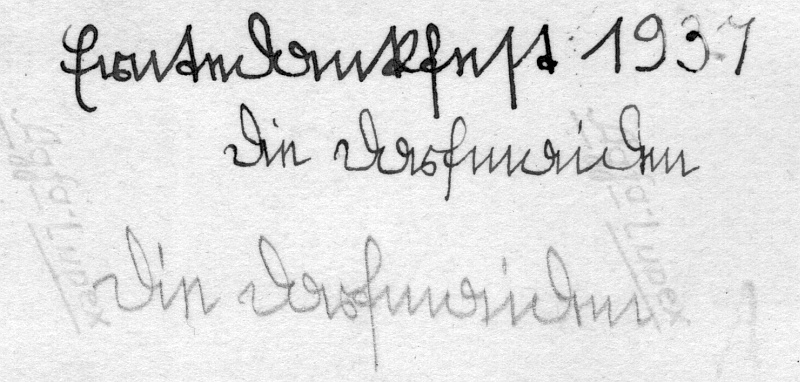 Erntedankfest 1937
Die Dorfmaiden
Die Dorfmaiden
Agfa Lupex
Agfa Lupex